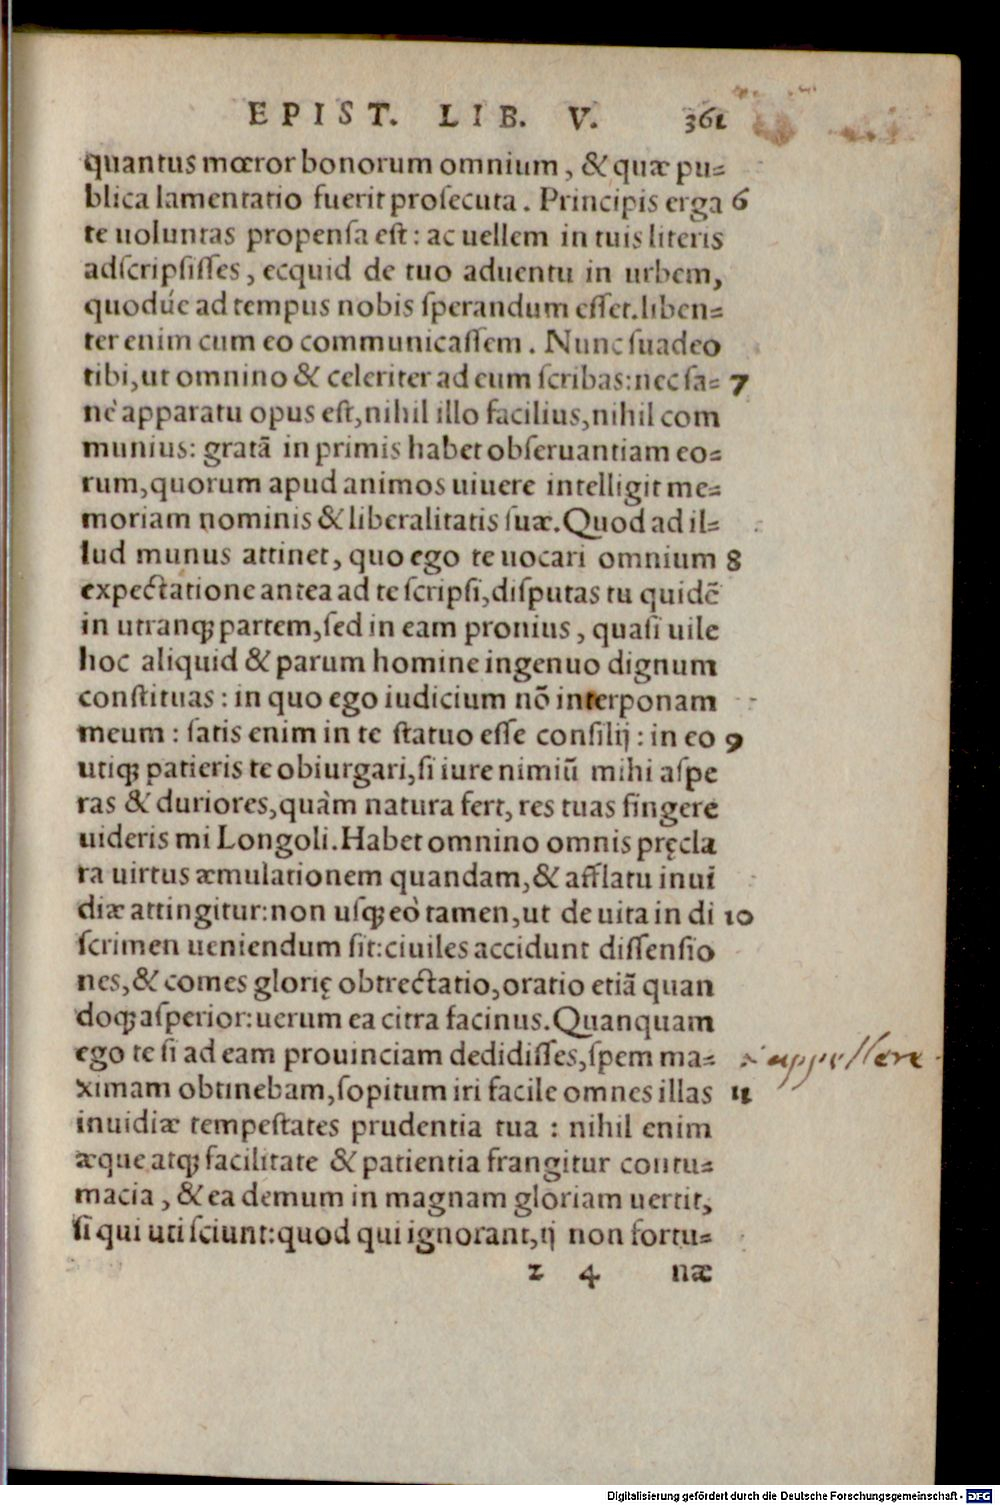 EPIST. LIB. V. 361
quantus mœror bonorum omnium, & quæ pu=
blica lamentatio fuerit prosecuta. Principis erga 6
te uoluntas propensa est: ac uellem in tuis literis
adscripsisses, ecquid de tuo aduentu in urbem,
quodúe ad tempus nobis sperandum esset. liben=
ter enim cum eo communicassem. Nunc suadeo
tibi, ut omnino & celeriter ad eum scribas: nec sa= 7
nè apparatu opus est, nihil illo facilius, nihil com
munius: gratã in primis habet obseruantiam eo=
rum, quorum apud animos uiuere intelligit me=
moriam nominis & liberalitatis suæ. Quod ad il=
lud munus attinet, quo ego te uocari omnium 8
expectatione antea ad te scripsi, disputas tu quidẽ
in utranq; partem, sed in eam pronius, quasi uile
hoc aliquid & parum homine ingenuo dignum
constituas: in quo ego iudicium nõ interponam
meum: satis enim in te statuo esse consilij: in eo 9
utiq; patieris te obiurgari, si iure nimiũ mihi aspe
ras & duriores, quàm natura fert, res tuas fingere
uideris mi Longoli. Habet omnino omnis pręcla
ra uirtus æmulationem quandam, & afflatu inui
diæ attingitur: non usq; eò tamen, ut de uita in di 10
scrimen ueniendum sit: ciuiles accidunt dissensio
nes, & comes glorię obtrectatio, oratio etiã quan
doq; asperior: uerum ea citra facinus. Quanquam
ego te si ad eam prouinciam dedidisses, spem ma= appellere
ximam obtinebam, sopitum iri facile omnes illas 11
inuidiæ tempestates prudentia tua: nihil enim
æque atq; facilitate & patientia frangitur contu=
macia, & ea demum in magnam gloriam uertit,
si qui uti sciunt: quod qui ignorant, ij non fortu=
z 4 næ
Digitalisierung gefördert durch die Deutsche Forschungsgemeinschaft - DFG